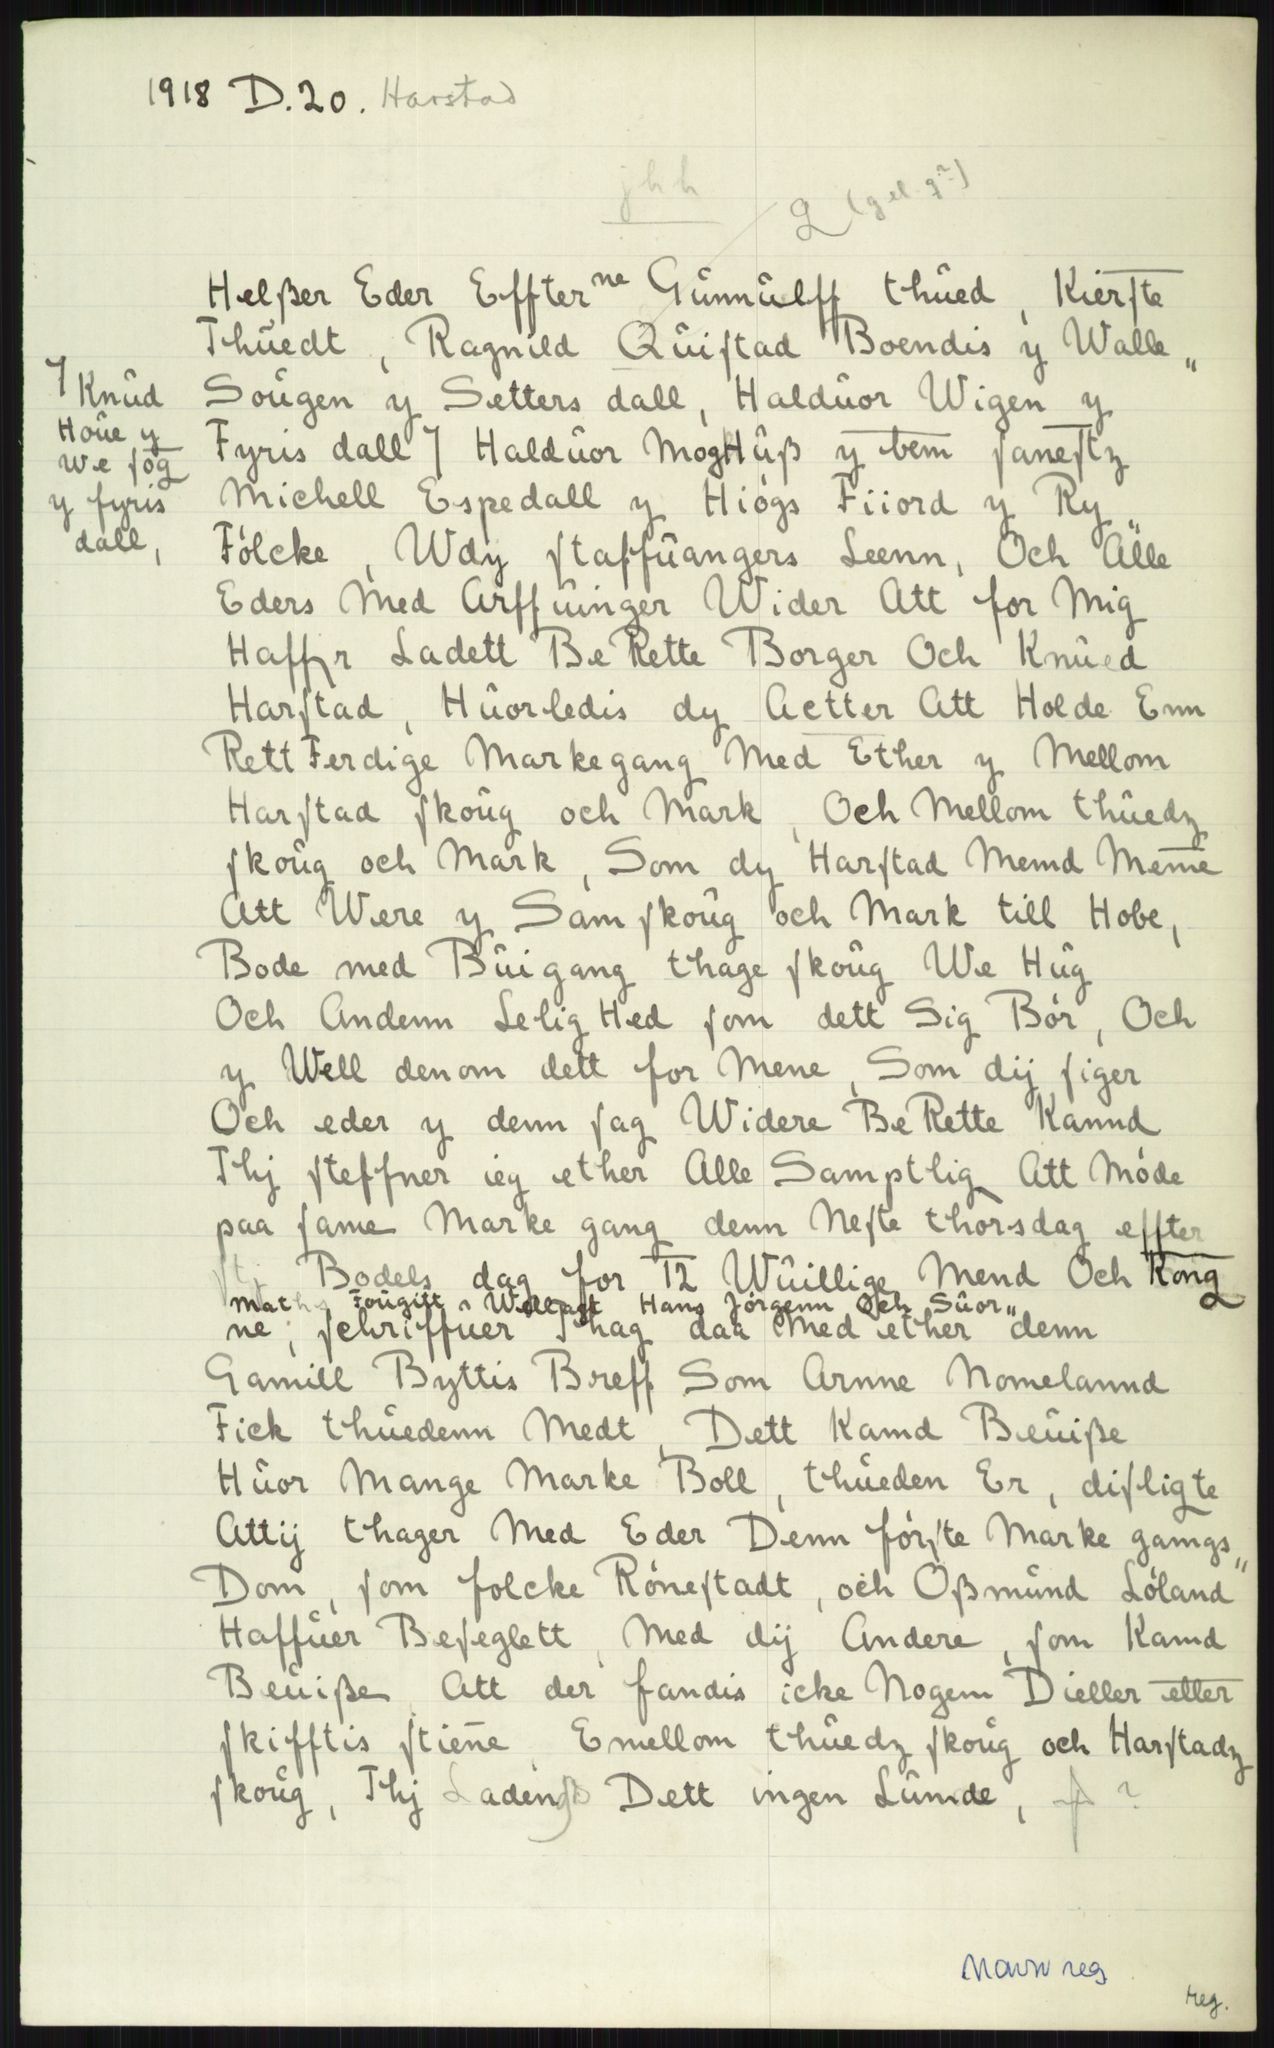 1918 D.20. Harstad
jhh
g (g el. q?)
Helßer Eder Effter ne Gŭnnŭlff thŭed, Kierste
Thŭedt, Ragnild Qŭistad Boendis y Walle„
Soŭgen y Setters dall, Haldŭor Wigen y
Fyris dall ⁊ Haldŭor MogHŭß y bem̅ sanestz
⁊ Knŭd
Hoŭe y
we sog
y fyris
dall,
Michell Espedall y Hiógs Fiiord y Ry„
Fólcke, Wdy staffŭangers Leenn, Och Alle
Eders Med Arffŭinger Wider Att for Mig
Haffr Ladett BeRette Borger Och Knŭed
Harstad, Hŭorledis dy Actter Att Holde Enn
RettFerdige Markegang Med Ether y Mellom
Harstad skoŭg och Mark, Och Mellom thŭedz
skoŭg och Mark, Som dy Harstad Memd Mem̅e
Att Were y Sam skoŭg och Mark till Hobe,
Bode med Bŭigang thage skoŭg We Hŭg
Och Andenn Lelig Hed som dett Sig Bór, Och
y Well denom dett for Mene, Som dij siger
Och eder y denn sag Widere BeRette Kannd
Thj steffner ieg ether Alle Samptlig Att Móde
paa same Marke gang denn Neste thorsdag effter
st. Bodels dag for 12 Wŭillige Mend Och Kong
Mathz Foŭgitt, Welagt Hans Jórgenn Och Sŭor„
ne, schriffuer Thag daa Med ether denn
Gamill Byttis Breff Som Arnne Nomelannd
Fick thŭedenn Medt, Dett Kamd Beŭiße
Hŭor Mange Marke Boll, thŭeden Er, disligte
Attij thager Med Eder Denn fórste Marke gamgs„
Dom, som folcke Rónestadt, och Oßmŭnd Lóland
Haffŭer Beseglett, Med dij Andere, som Kamd
Beŭiße Att der fandis icke Nogem Dieller etter
skifftis stien̅e Emellom thŭedz skoŭg och Harstadz
skoŭg, Thj Ladenß Dett ingen Lŭnde, ?
Navn reg
reg.